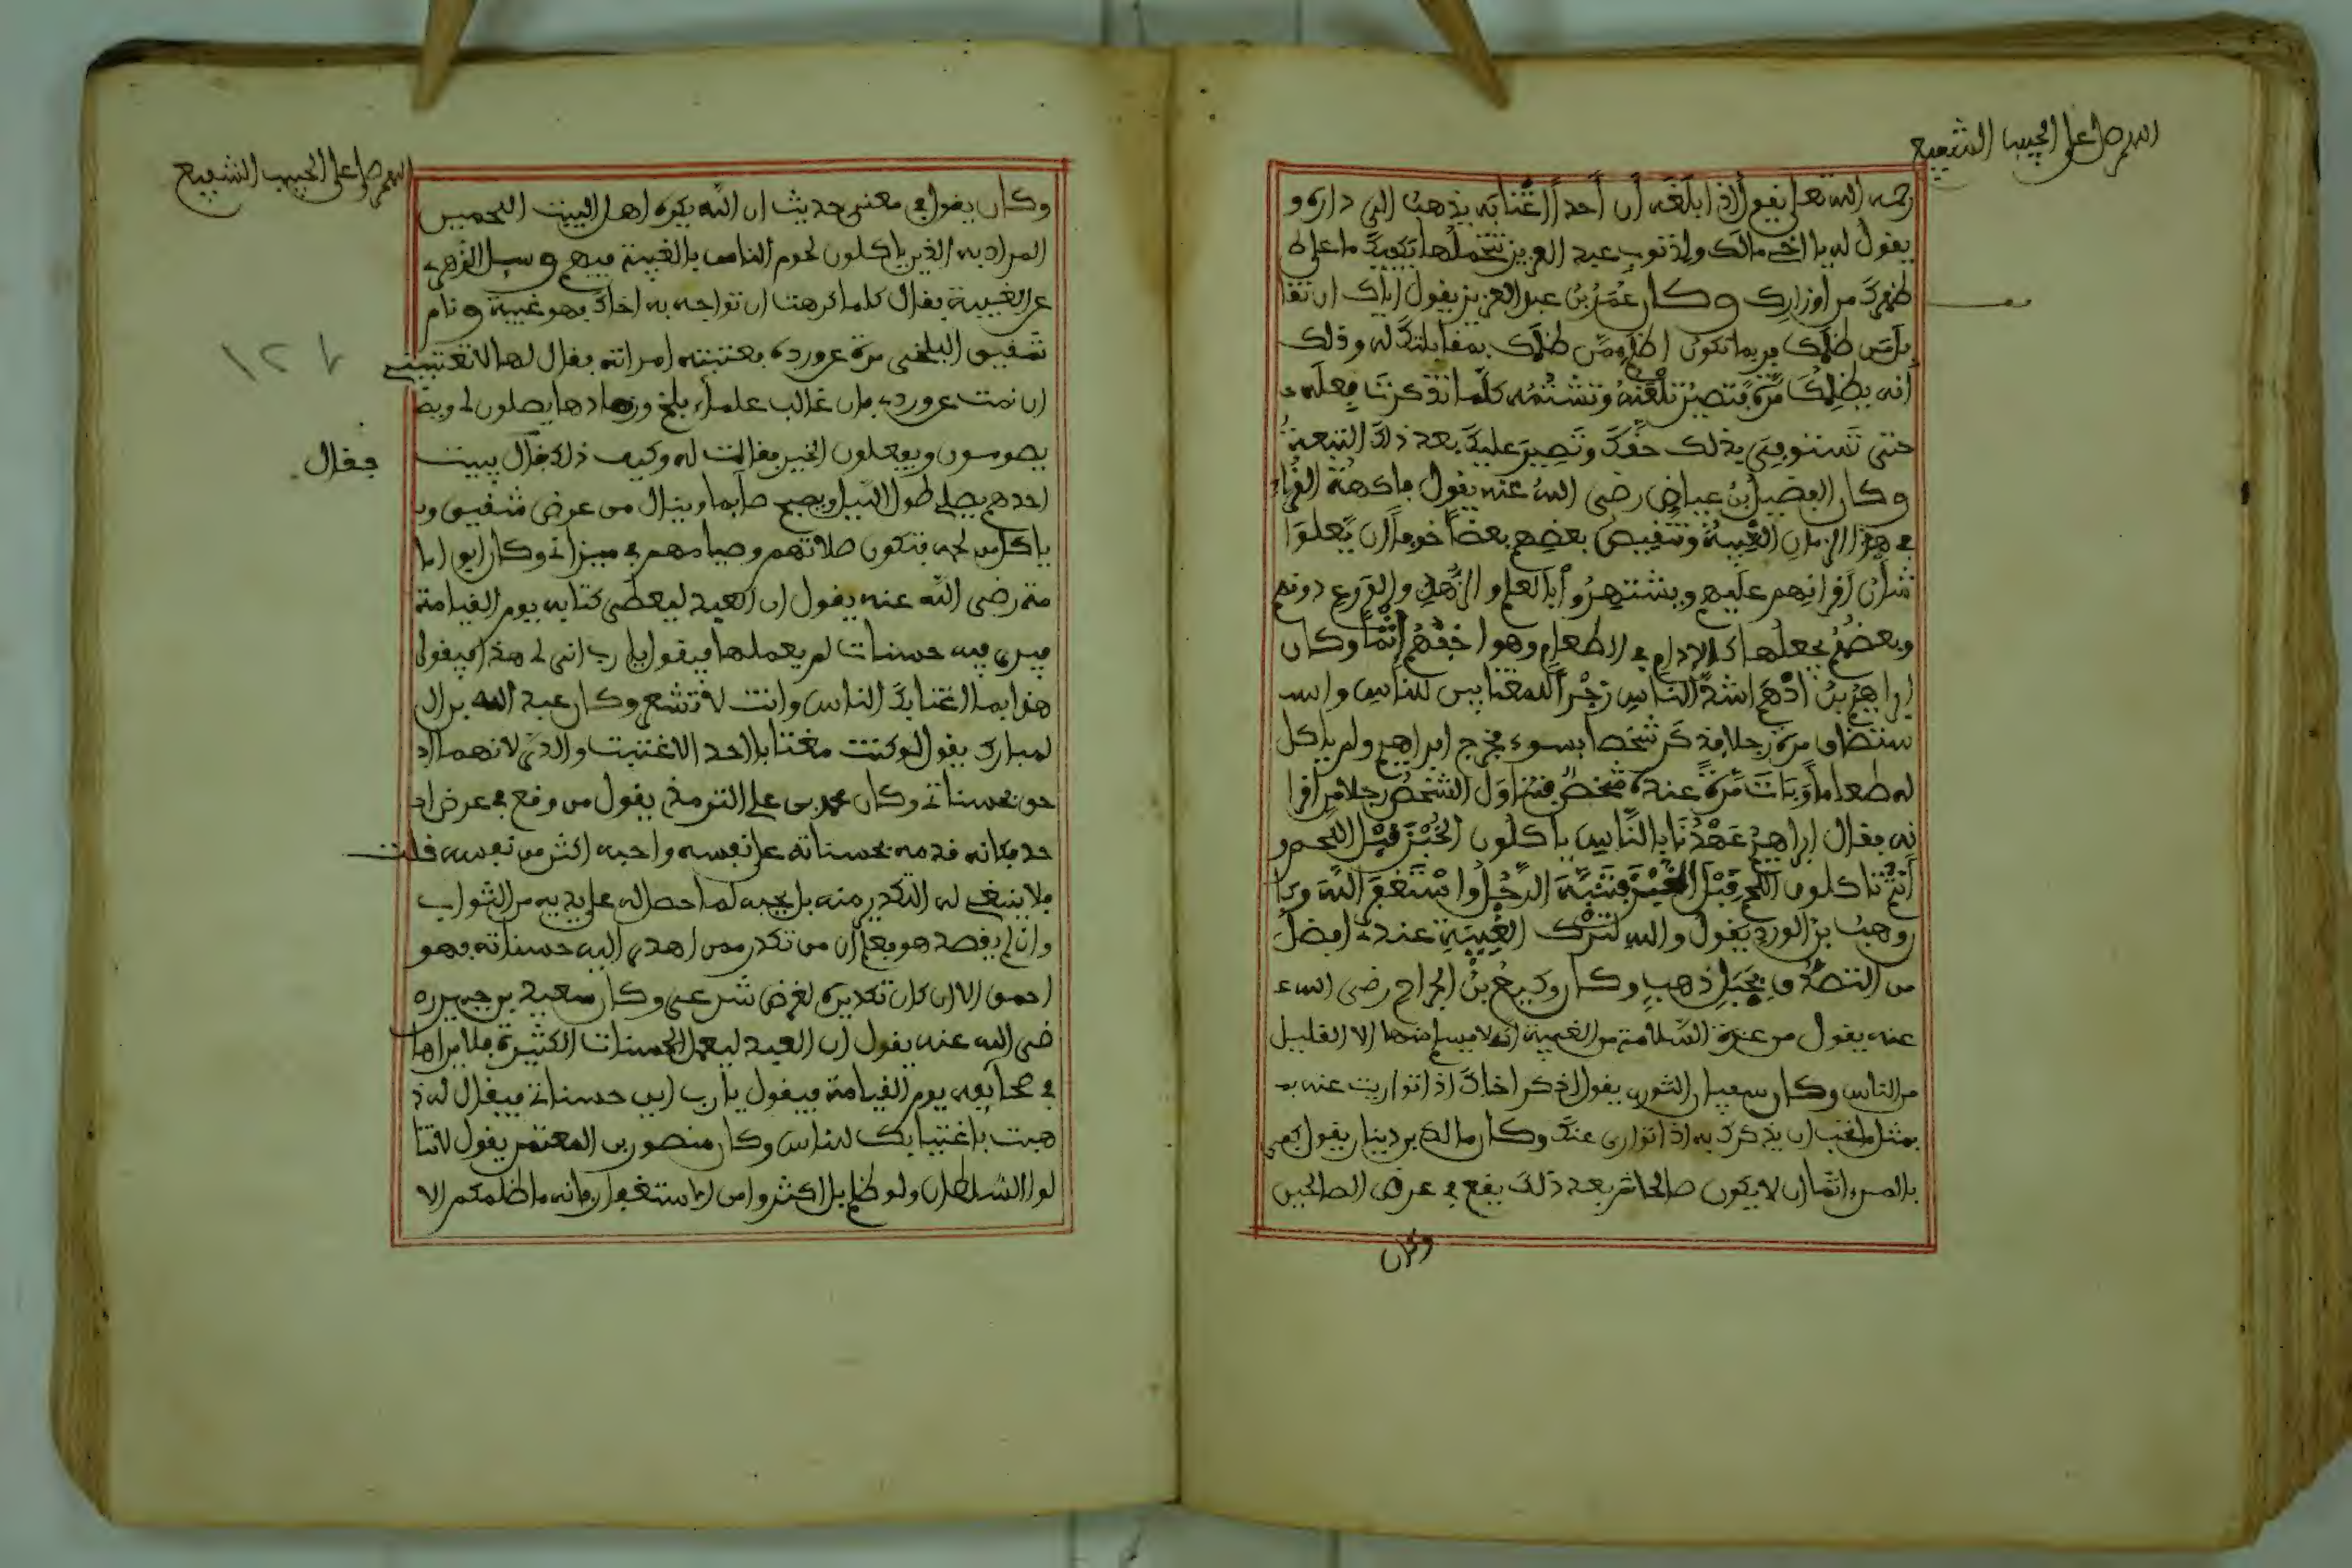 اللهم صل على الحبيب الشفيع
رحمه الله تعالى يقول إذا بلغه أن أحدا اغتابه يذهب الى داره و
يقول له يا اخي مالك ولذنوب عبد العزيز تتحملها يكفيك ما على ظ
ظهرك من اوزارك وكان عمر بن عبد العزيز يقول اياك ان تقا
بل من ظلمك فربما تكون اظلم ممن ظلمك بمقابلتك له وذلك
أنه يظلمك مرة فتصير تلعنه وتشتمه كلما تذكرت فعله
حتى تستوفي بذلك حقك وتصير عليك بعد ذلك التبعة
وكان الفضيل بن عياض رضي الله عنه يقول فاكهة القراء
في هذا الزمان الغيبة وتنقيص بعضهم بعضا خوفا أن يعلوا
شأن أقرانهم عليهم ويشتهروا بالعلم والزهد والورع دونهم
وبعضهم يجعلها كالإدام في الطعام وهو اخفهم إثما وكان
ابراهيم بن أدهم اشد الناس زجرا للمغتابين للناس واسـ
ستضاف مرة رجلا فذكر شخصا بسوء فخرج ابراهيم ولم ياكل
له طعاما وبات مرة عنده شخص فتناول الشخص رجلا من أقرا
نه فقال ابراهيم عهدنا بالناس ياكلون الخبز قبل اللحم و
أنتم تاكلون اللحم قبل الخبز فتنبه الرجل واستغفر الله وكا
وهب بن الورد يقول والله لترك الغيبة عندي افضل
من التصدق بجبل ذهب وكان وكيع بن الجراح رضي الله ع
عنه يقول من عزة السلامة من الغيبة انه لا يسلم منها الا القليل
من الناس وكان سفيان الثوري يقول اذكر اخاك اذا تواريت عنه بمـ
بمثل ما تحب ان يذكرك به اذا توارى عنك وكان مالك بن دينار يقول كفى
بالمرء اثما ان لا يكون صالحا ثم بعد ذلك يقع في عرض الصالحين
وكان
اللهم صل على الحبيب الشفيع
وكان يقول في معنى حديث ان الله يكره اهل البيت اللحميين
المراد به الذين ياكلون لحوم الناس بالغيبة فيهم وسيل الزهري
عن الغيبة فقال كلما كرهت ان تواجه به اخاك فهو غيبة ونام
شقيق البلخي مرة عن ورده فعتبته امراته فقال لها لا تعتبيني
ان نمت عن وردي فان غالب علماء بلخ وزهادها يصلون لي ويصـ
يصومون ويفعلون الخير فقالت له وكيف ذلك فقال يبيت
فقال
احدهم يصلي طول الليل ويصبح صايما وينال من عرض شقيق ويـ
ياكل من لحمه فتكون صلاتهم وصيامهم في ميزاني وكان ابو اما
مة رضي الله عنه يقول ان العبد ليعطى كتابه يوم القيامة
فيرى فيه حسنات لم يعملها فيقول يا رب انى لي هذا فيقول
هذا بما اغتابك الناس وانت لا تشعر وكان عبد الله بن ال
لمبارك يقول لو كنت مغتابا احدا لاغتبت والدي لانهما احـ
حق بحسناتي وكان محمد بن علي الترمذي يقول من وقع في عرض احـ
حد فكانه قدمه بحسناته على نفسه واحبه اكثر من نفسه قلت
فلا ينبغي له التكدر منه بل يحبه لما حصل له على يديه من الثواب
وان لم يقصد هو فعلم ان من تكدر ممن اهدى اليه حسناته فهو
احمق الا ان كان تكديره لغرض شرعي وكان سعيد بن جبير ر
ضي الله عنه يقول ان العبد ليعمل الحسنات الكثيرة فلا يراها
في صحايفه يوم القيامة فيقول يا رب اين حسناتي فيقال له ذ
هبت باغتيابك للناس وكان منصور بن المعتمر يقول لا تنا
لوا السلطان ولو ظلم بل اكثروا من الاستغفار فانه ما ظلمكم الا